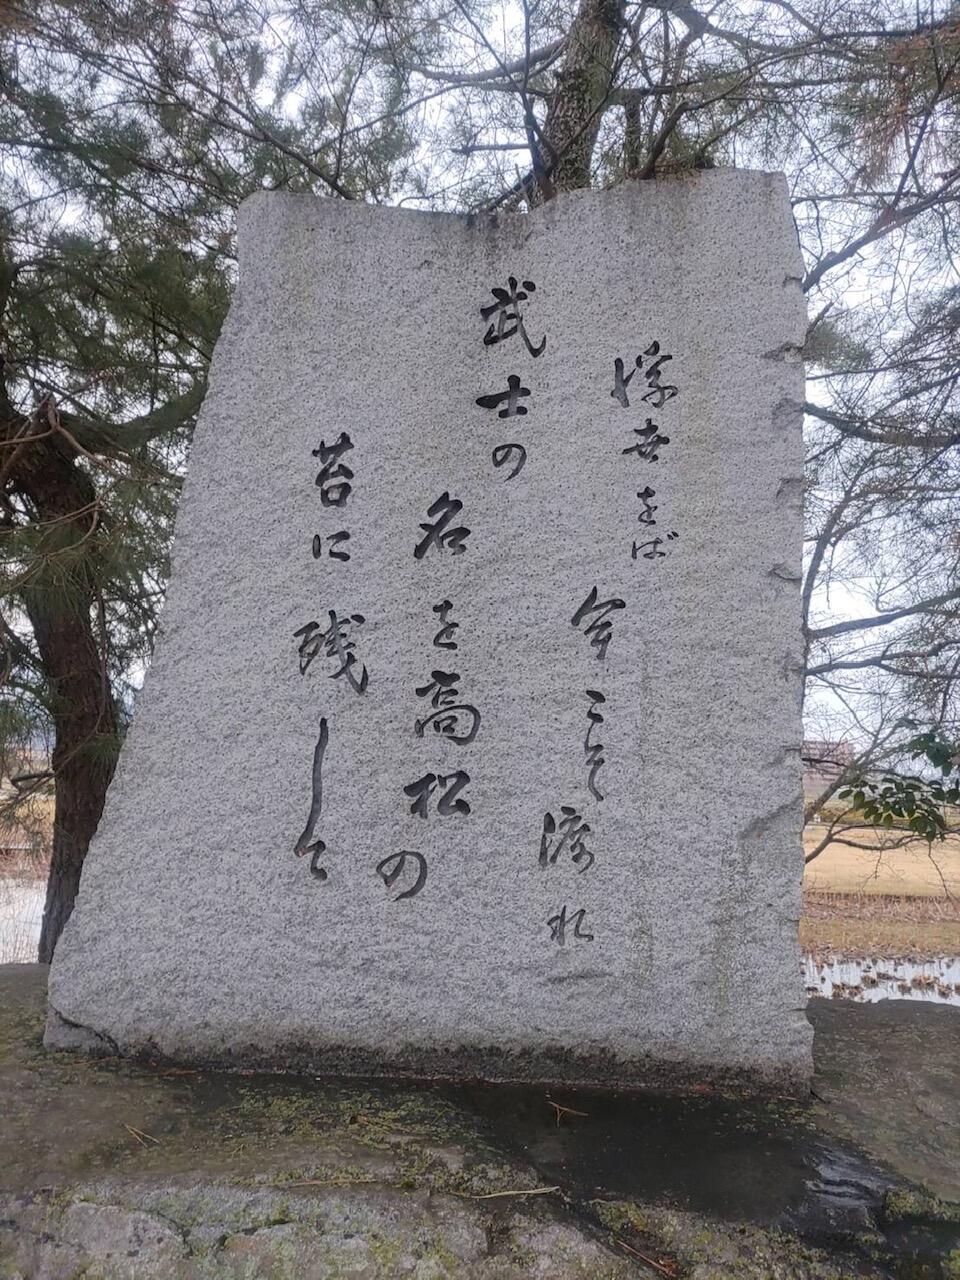 浮世をば
今こそ渡れ
武士の
名を高松の
苔に残して